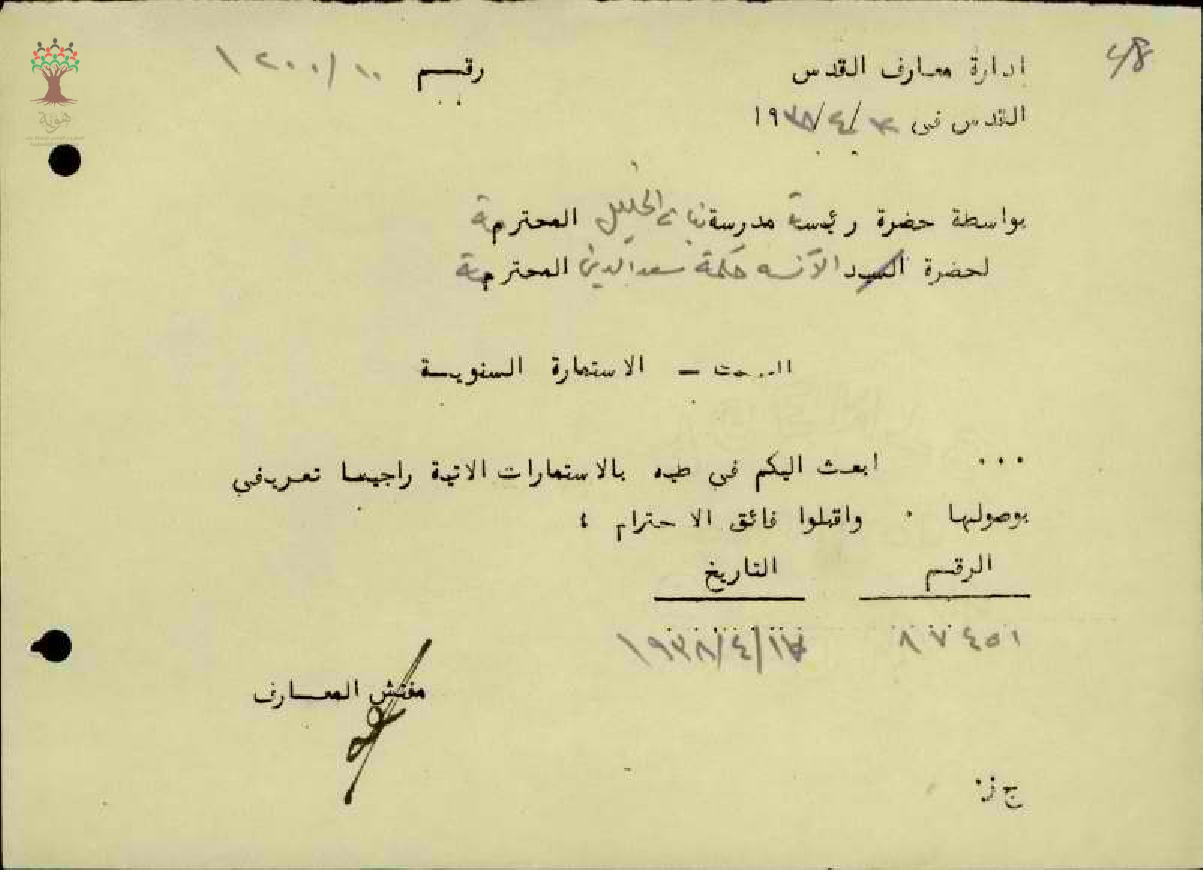 48
ادارة معارف القدس رقم ١٢٠٠/١٠
القدس في /٤/١٩٣٨
بواسطة حضرة رئيسة مدرسة بنات الخليل المحترمة
لحضرة السيد الآنسه حكمة سعد الدين المحترمة
البحث - الاستمارة السنوية
... ابعث اليكم في طيه بالاستمارات الاتية راجيا تعريفي
بوصولها ٠ واقبلوا فائق الاحترام ؛
الرقم التاريخ
٨٧٤٥١ /٤/١٩٣٨
مفتش المعارف
ج ن٠
هوية